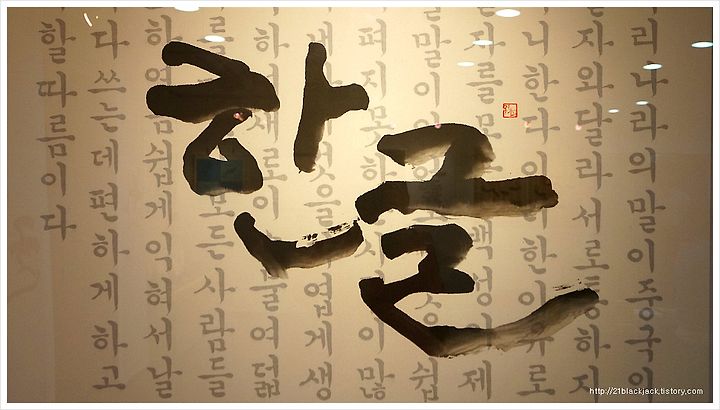 한글
리나라의말이중국의
자와달라서로통하지
니한다이러한이유로
백성이제
말이
펴지못하 이많
것을 엽게생
하여새로이 여덟
모든사람들
하여금쉽게익혀서날
다쓰는데편하게하고
할따름이다
http://21blackjack.tistory.com